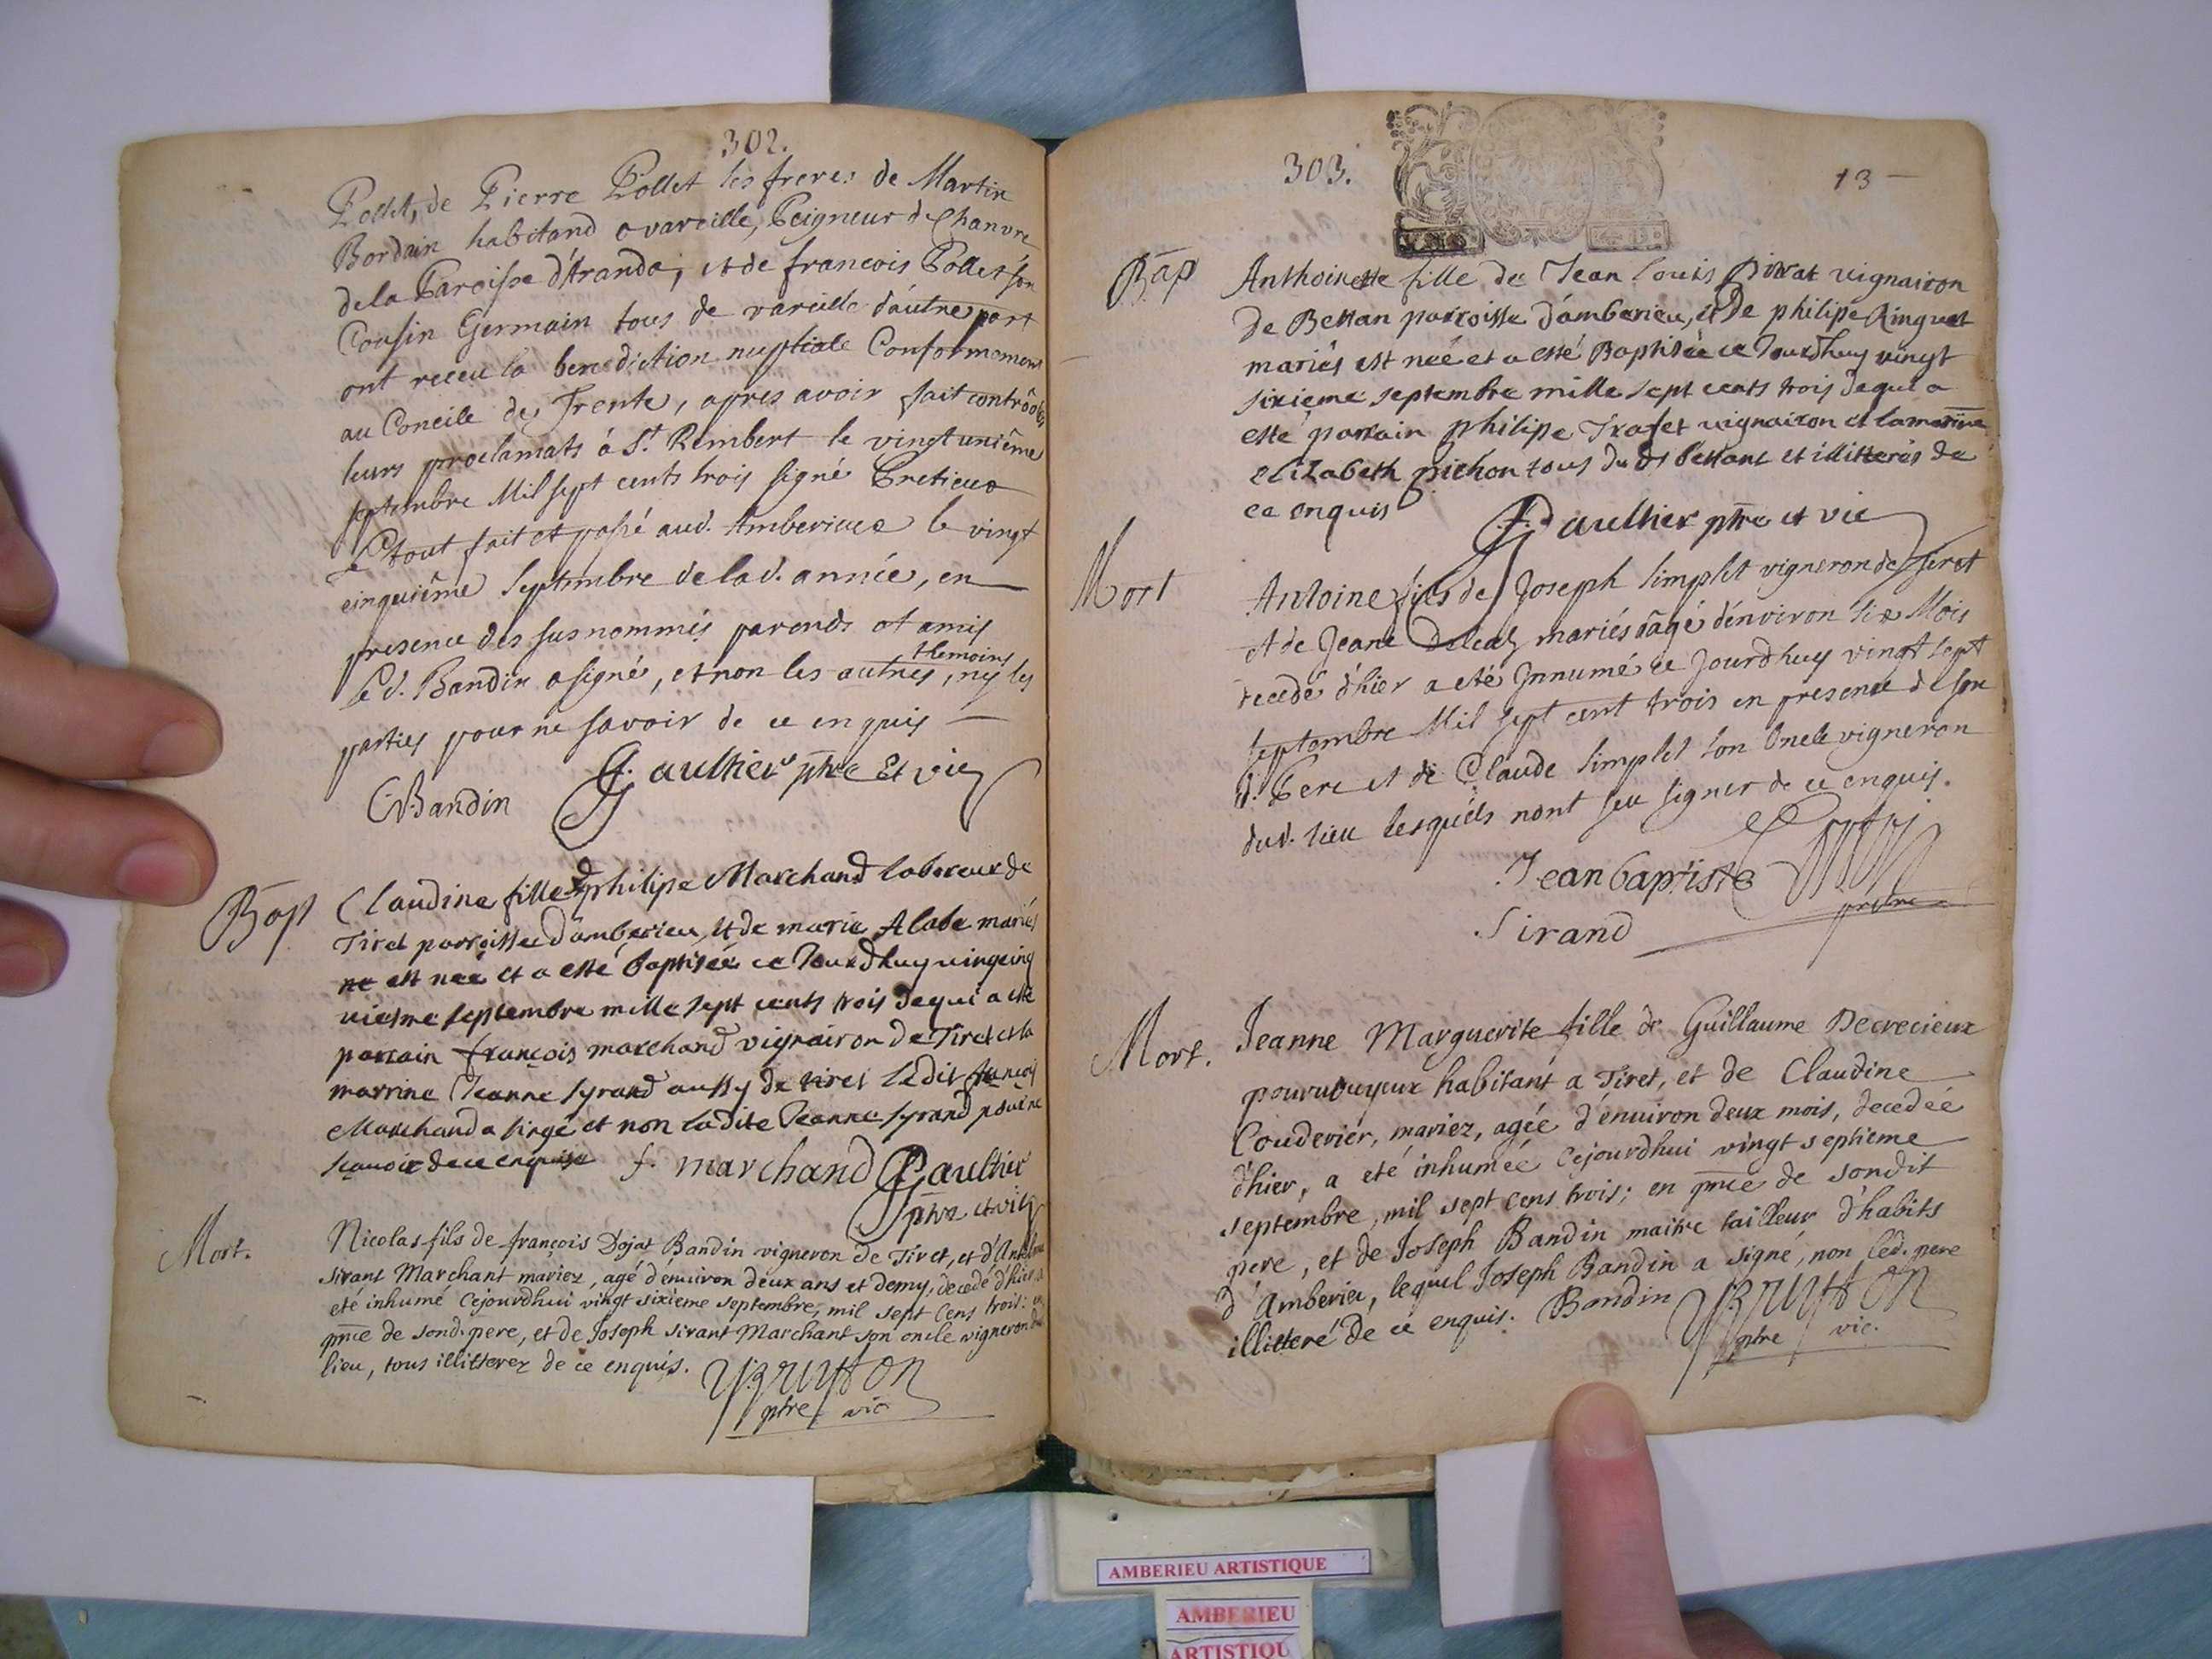 302.
Pollet, de Pierre Pollet ses freres de Martin
Bordain habitand a vareille, Peigneur de Chanvre
de la Paroisse d'Aranda, et de francois Pollet son
Cousin Germain tous de vareille d'autre part
ont receu la benediction nuptiale Conformement
au Concile de Trente, apres avoir fait contrôoler
leurs proclamats à St. Rembert le vingtuniême
septembre Mil sept cents trois signé Cretieux
Le tout fait et passé aud. Amberieux le vingt
cinquiême septembre de lad. année, en
presence des susnommés parends et amis
Led. Bandin a signé, et non les autres, ny les
themoins
parties pour ne savoir de ce enquis
C Bandin Gaultier ptre Et vic
Bap Claudine fille de philipe Marchand laboreur de
Tiret parroisse d'amberieu, et de marie Alabe mariés
ne est neé et a esté baptisée ce Jourdhuy vingcinq
uiesme septembre mille sept cents trois de qui a esté
parrain françois marchand vignairon de Tiret et la
marrine Jeanne syrand aussy de tiret ledit françois
Marchand a singé et non ladite Jeanne syrand pour ne
sçauoir de ce enquise f. marchand Gaultier
ptre et vic
Mort. Nicolas fils de françois Dojat Bandin vigneron de Tiret, et d'
Sirant Marchant mariez, agé d'enuiron deux ans et demy, decedé d'hier a
eté inhumé Cejourdhui vingt sixieme septembre, mil sept Cens trois: en
pnce de sond. pere, et de Joseph sirant Marchant son oncle vigneron du
lieu, tous illitterez de ce enquis. Brutton
ptre vic.
303. 13
Bap Anthoinette fille de Jean louis vignairon
de Bettan parroisse d'amberieu, et De philipe Ringuet
mariés est neé et a esté Baptisée ce Jourdhuy vingt
sixieme septembre mille sept cents trois de qui a
esté parrain philipe Trafet vignairon et la marrine
elizabeth pichon tous dud bettant et illitterés de
ce enquis Gaultier ptre et vic
Mort Antoine fils de Joseph simplet vigneron de tiret
et de Jeane mariés âgé d'environ six Mois
decedé d'hier a eté Innumé ce Jourdhuy vingt sept
septembre Mil sept cent trois en presence de son
d. Pere et de Claude simplet son Oncle vigneron
dud. lieu lesquels nont seu signer de ce enquis.
Jean baptiste
Sirand prestre
Mort. Jeanne Marguerite fille de Guillaume Decrecieux
pourvoyeux habitant a Tiret, et de Claudine
Couderier, mariez, agée d'énuiron deux mois, decedée
d'hier, a eté inhumée Cejourdhui vingt septieme
septembre, mil sept Cens trois; en pnce de sondit
pere, et de Joseph Bandin maitre tailleur d'habits
d'Amberieu, lequel Joseph Bandin a signé, non led. pere
illitteré de ce enquis. Bandin Brutton
ptre vic.
AMBERIEU ARTISTIQUE
AMBERIEU
ARTISTIQU